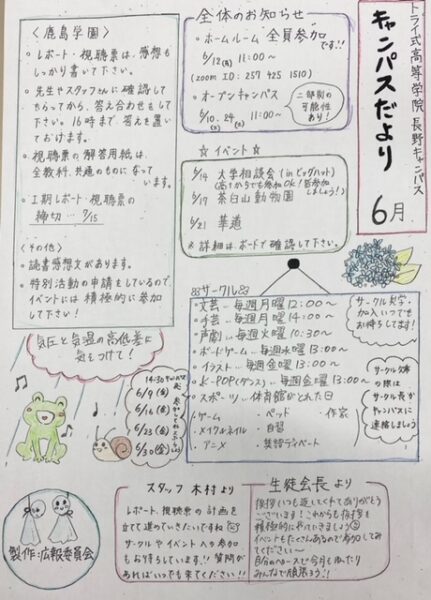 トライ式高等学院 長野キャンパス
キャンパスだより
6月
全体のお知らせ
・ホームルーム 全員参加です!!
6/12(月) 11:00〜
(zoom ID: 257 425 1510)
・オープンキャンパス
6/10、24 11:00〜
二部制の可能性あり!
☆イベント☆
6/14 大学相談会(inビッグハット)
6/17 茶臼山動物園
6/21 華道
※詳細はボードで確認して下さい。
〈鹿島学園〉
・レポート・視聴票は、感想も
しっかり書いて下さい。
・先生やスタッフさんに確認して
もらってから、答え合わせをして
下さい。16時まで、答えを置い
ておけます。
・視聴票の解答用紙は、
全教科、共通のものになって
います。
・Ⅰ期レポート・視聴票の
締切…7/15
〈その他〉
・読書感想文があります。
・特別活動の申請をしているので、
イベントには積極的に参加
して下さい!
気圧と気温の高低差に
気をつけて!
14:30
6/9(金)
6/16(金)
6/23(金)
6/30(金)
サークル
・文芸…毎週月曜12:00〜
・手芸…毎週月曜14:00〜
・声劇…毎週火曜10:30〜
・ボードゲーム…毎週水曜13:00〜
・イラスト…毎週金曜13:00〜
・K-POP(ダンス)…毎週金曜13:00〜
・スポーツ…体育館がとれた日
・ゲーム ・ペット ・作家
・メイクルネイル ・自習
・アニメ ・英語ディベート
サークル見学・
加入いつでも
お待ちしてます!
サークル欠席
の際は
サークル長か
キャンパスに
連絡しましょう
スタッフ 木村より
レポート、視聴票の計画を
立て進っていきたいですね
サークルやイベント入り参加
もお待ちしています!!質問が
あればいつでも来てください!!
生徒会長より
挨拶いつも返してくれてありがとう
ございます!これからも挨拶を
積極的にやっていきましょう
イベントもたくさんあるので参加して
みてください〜
みんなで頑張ろう!!
製作:広報委員会